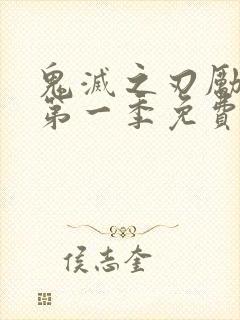 鬼滅之刃勵
第一季免費
侯志奎